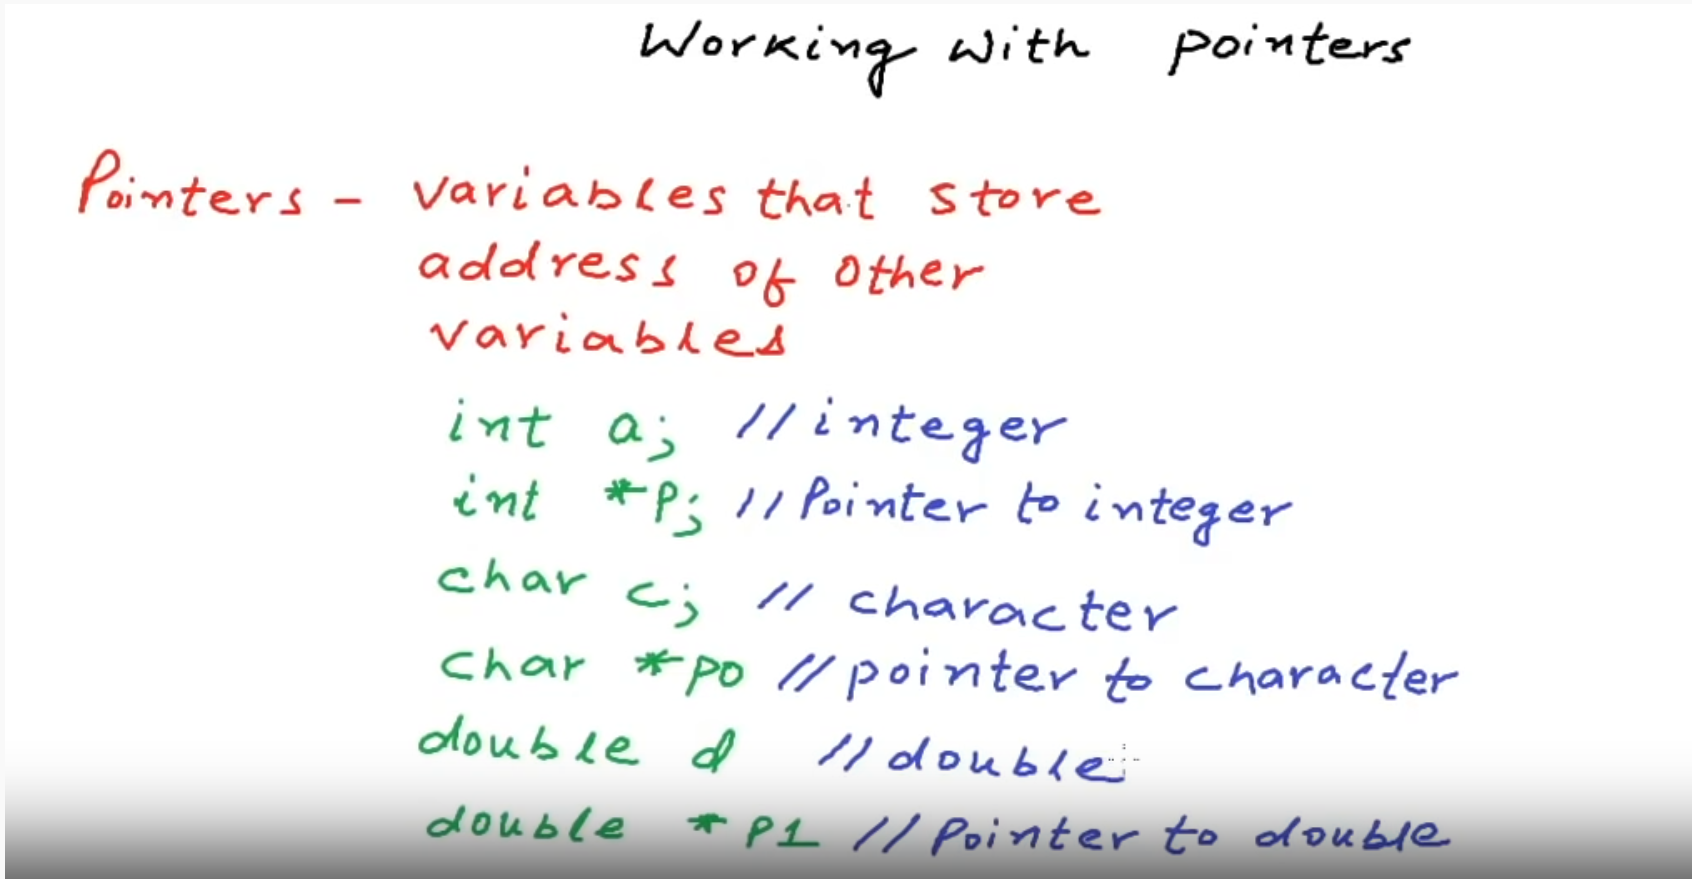 Working with pointers
Pointers - variables that store
address of other
variables
int a; //integer
int *p; //Pointer to integer
char c; // character
char *po //pointer to character
double d //double
double *p1 //Pointer to double